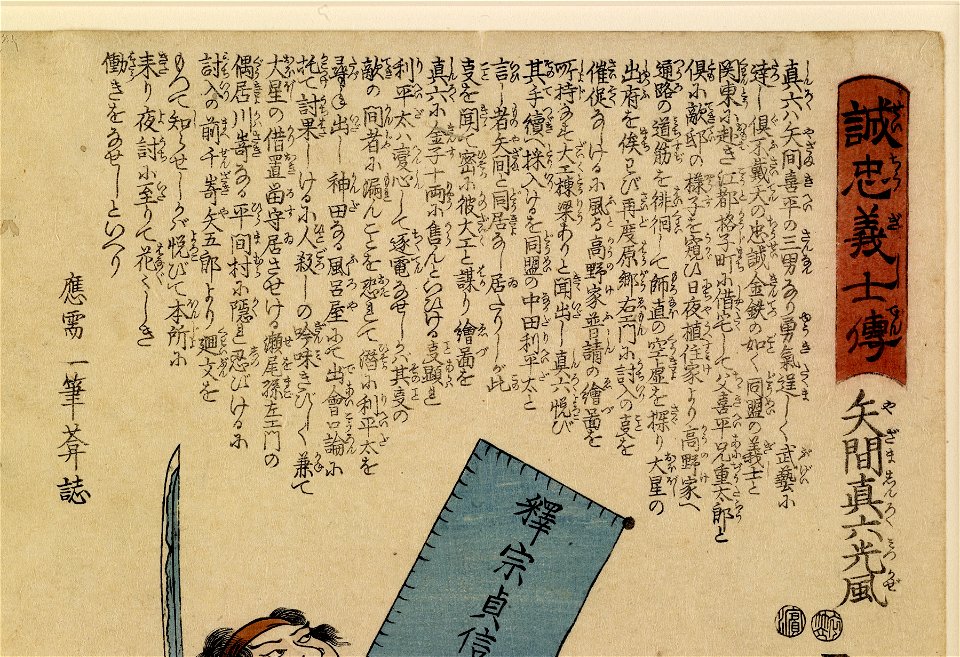 誠忠義士傳
矢間真六光風
真六ハ矢間喜平の三男なり勇氣逞しく武藝に
達し倶不戴天の忠誠金鉄の如く同盟の義士と
関東に赴き江都格子町に借宅して父喜平兄重太郎と
倶に敵邸の様子を窺ひ日夜植住家より高野家へ
通路の道筋を徘徊して師直の空虚を探り大星の
出府を俟わび再度原郷右エ門に討入の支を
催促なしけるに風る高野家普請の繪圖を
所持なす大工棟梁ありと聞出し真六悦び
其手續を採入けるを同盟の中田利平太と
言し者矢間と同居なし居たりしが此
支を聞て密に彼大工と謀り繪圖を
真六に金子十両に售んといひける支顕れ
利平太ハ変心して逐電なせしハ其支の
敵の間者に漏んことを恐れて潜に利平太を
尋ね出し神田なる風呂屋にて出會口論に
托て討果しけるに人殺しの吟味きびしく兼て
大星の借置留守居させける瀬尾孫左エ門の
偶居川嵜なる平間村に隠れ忍びけるに
討入の前千嵜矢五郎より廻文を
もつて知らせしかバ悦びて本所に
来り夜討に至りて花々しき
働きをなせしといへり
應需一筆葊誌
釋宗貞信